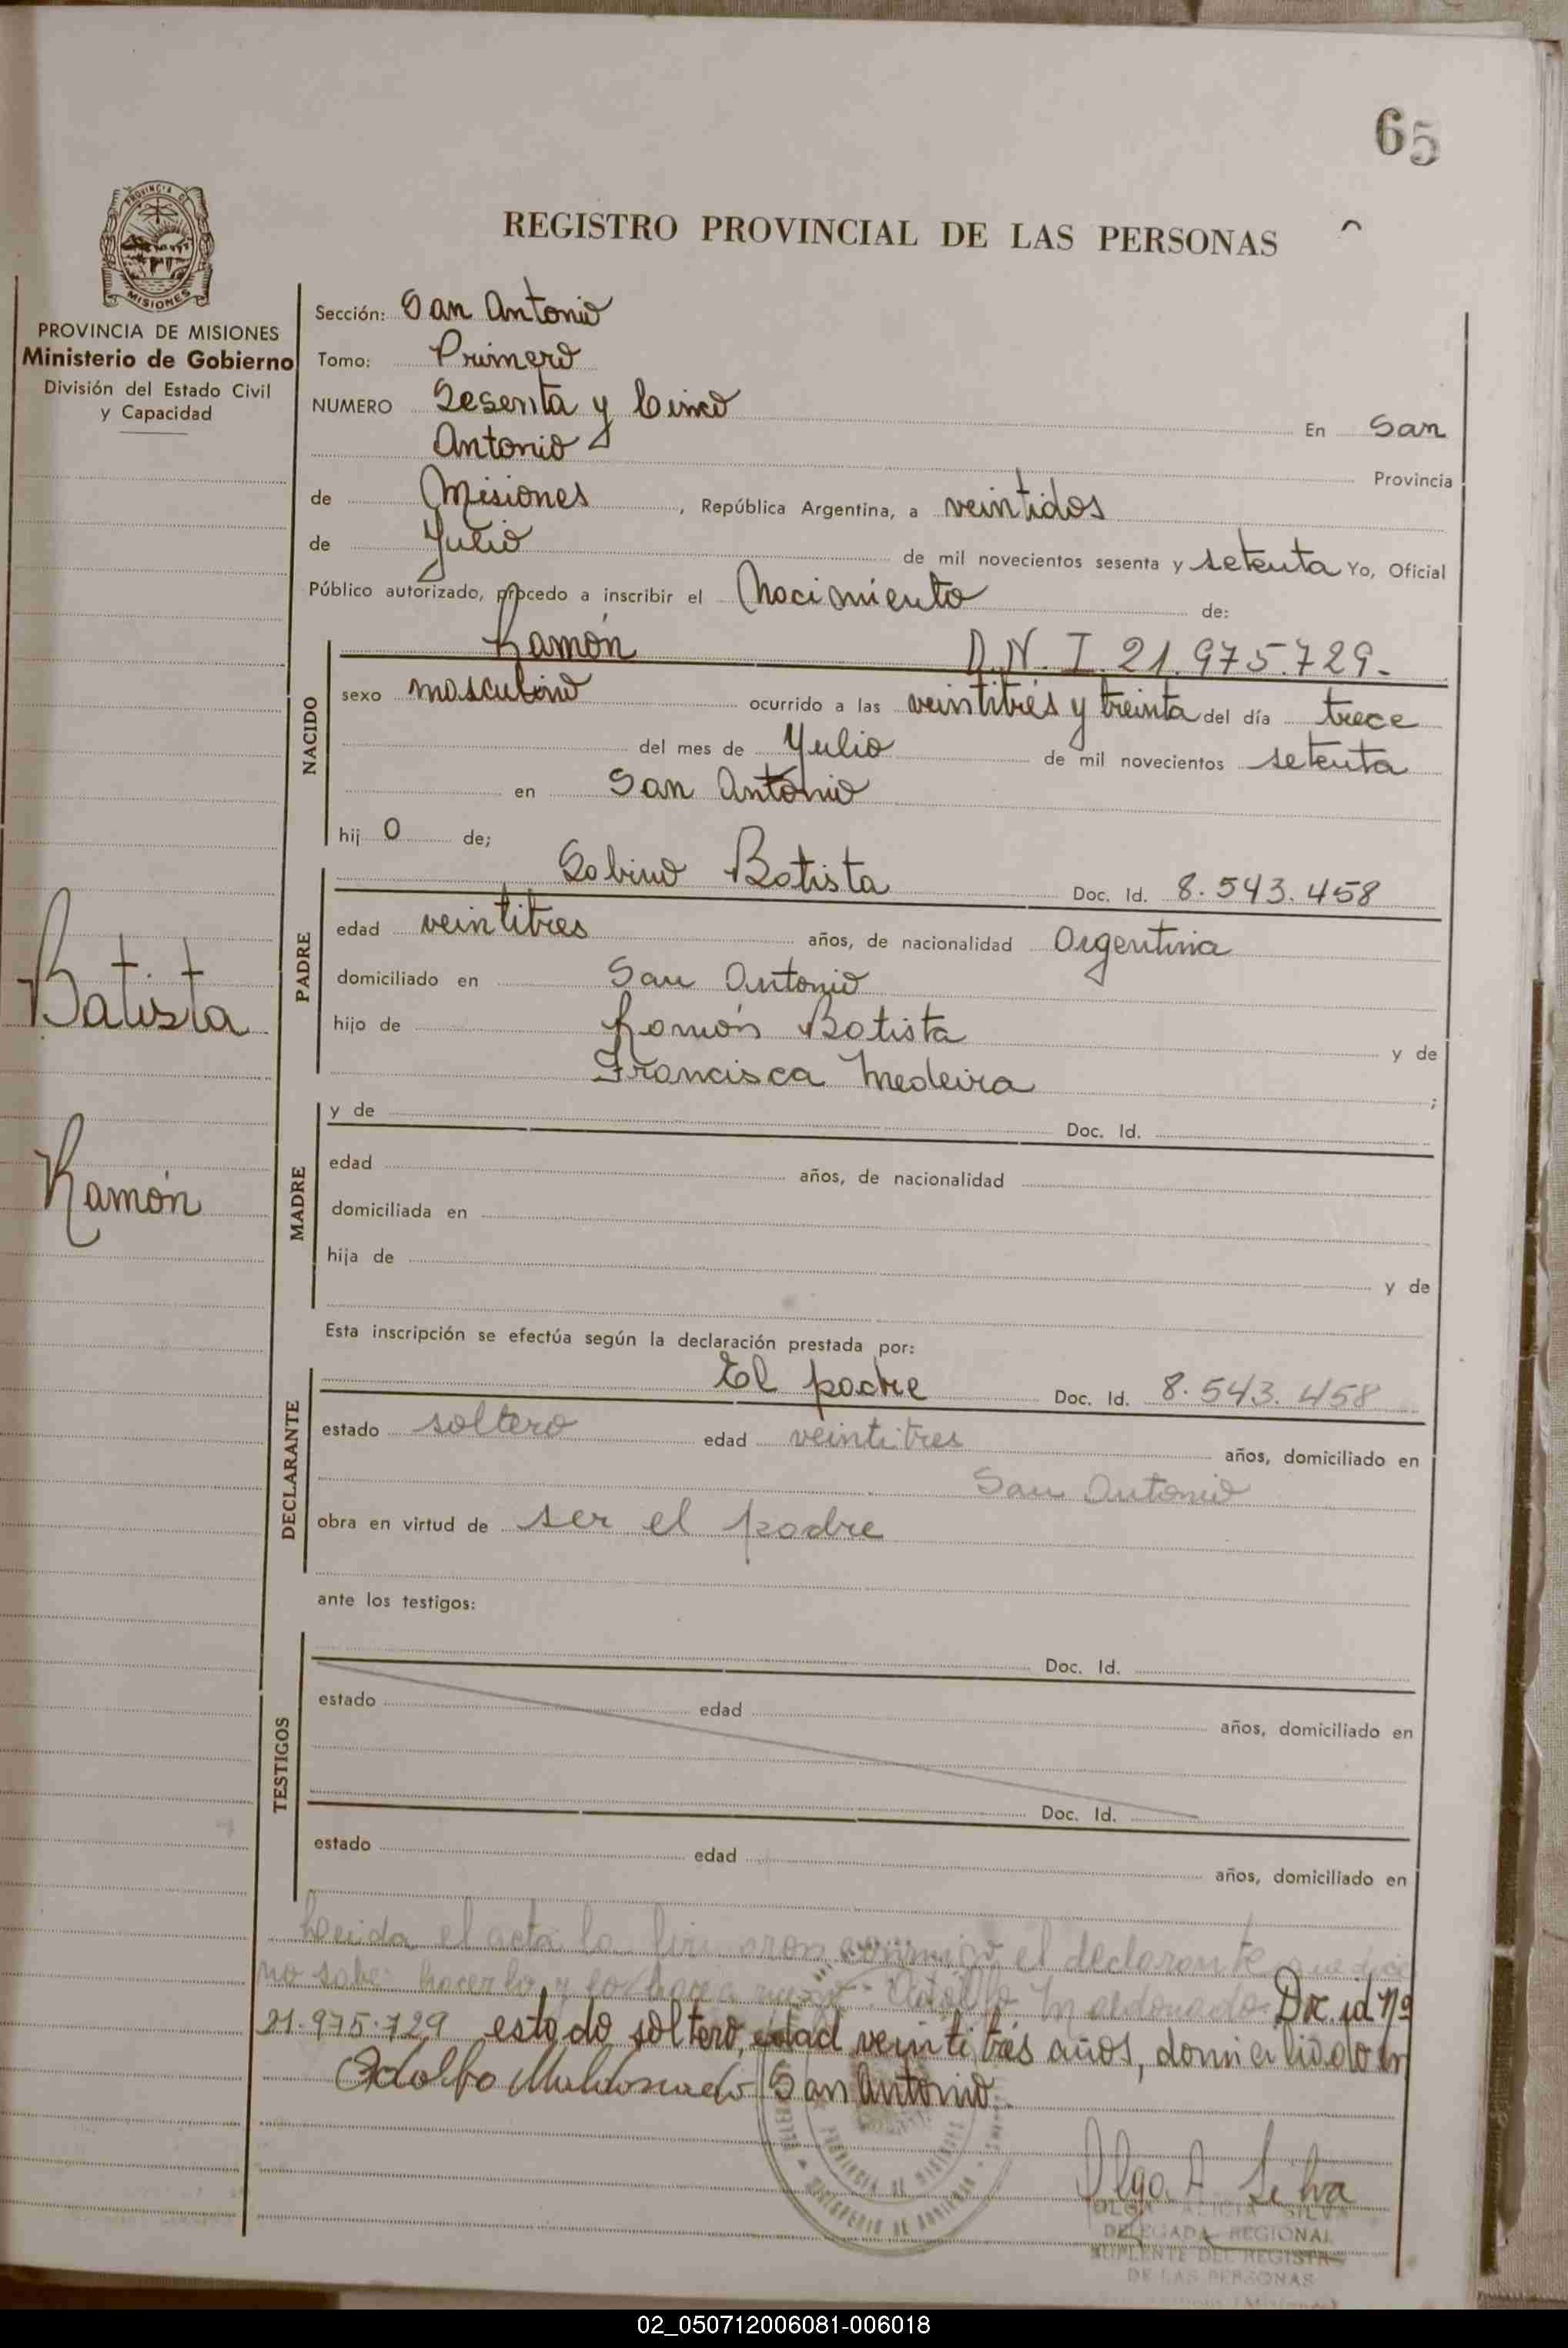 65
REGISTRO PROVINCIAL DE LAS PERSONAS
PROVINCIA DE MISIONES
Ministerio de Gobierno
División del Estado Civil
y Capacidad
Sección: San Antonio
Tomo: Primero
NUMERO Sesenta y Cinco En San
Antonio Provincia
de Misiones, República Argentina, a veintidos
de Julio de mil novecientos sesenta y setenta Yo, Oficial
Público autorizado, procedo a inscribir el Nacimiento de:
Ramón D.N.I. 21.975.729.-
NACIDO
sexo masculino ocurrido a las veintitrés y treinta del día trece
del mes de Julio de mil novecientos setenta
en San Antonio
hij o de;
Sabino Batista Doc. Id. 8.543.458
PADRE
edad veintitres años, de nacionalidad Argentina
domiciliado en San Antonio
hijo de Ramón Batista y de
Francisca Medeira ;
Batista
Ramón
y de Doc. Id.
MADRE
edad años, de nacionalidad
domiciliada en
hija de y de
Esta inscripción se efectúa según la declaración prestada por:
El padre Doc. Id. 8.543.458
DECLARANTE
estado soltero edad veintitres años, domiciliado en
San Antonio
obra en virtud de ser el padre
ante los testigos:
Doc. Id.
TESTIGOS
estado edad años, domiciliado en
Doc. Id.
estado edad años, domiciliado en
Leida el acta la firmaron conmigo el declarante que dice
no saber hacerlo y lo hace a ruego Adolfo Maldonado. Doc. id nº
21.975.729 estado soltero, edad veintitrés años, domiciliado en
Adolfo Maldonado San Antonio.
PROVINCIA DE MISIONES
MINISTERIO DE GOBIERNO
Olga A Silva
OLGA ALICIA SILVA
DELEGADA REGIONAL
SUPLENTE DEL REGISTRO
DE LAS PERSONAS
02_050712006081-006018